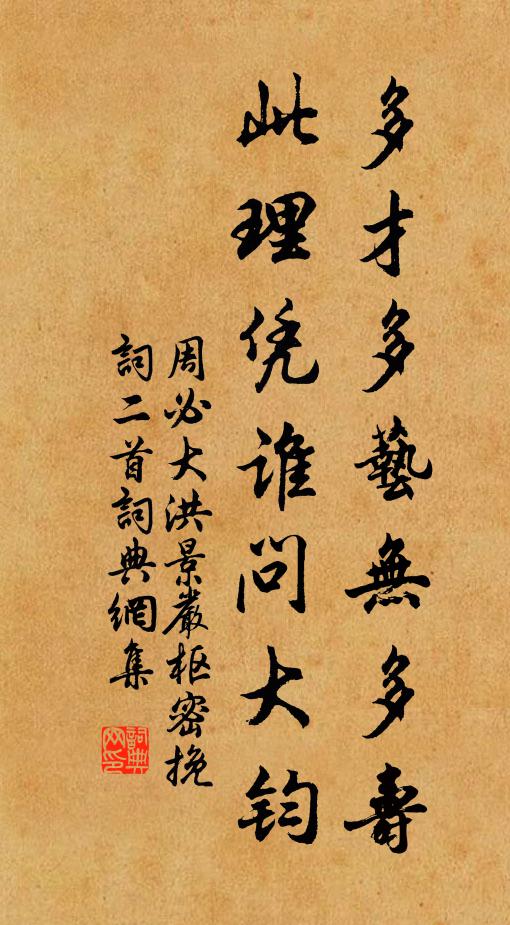 多才多藝無多壽
此理凭谁问大钧
周必大洪景嚴枢密挽
詞二首詞典網集
詞典網印